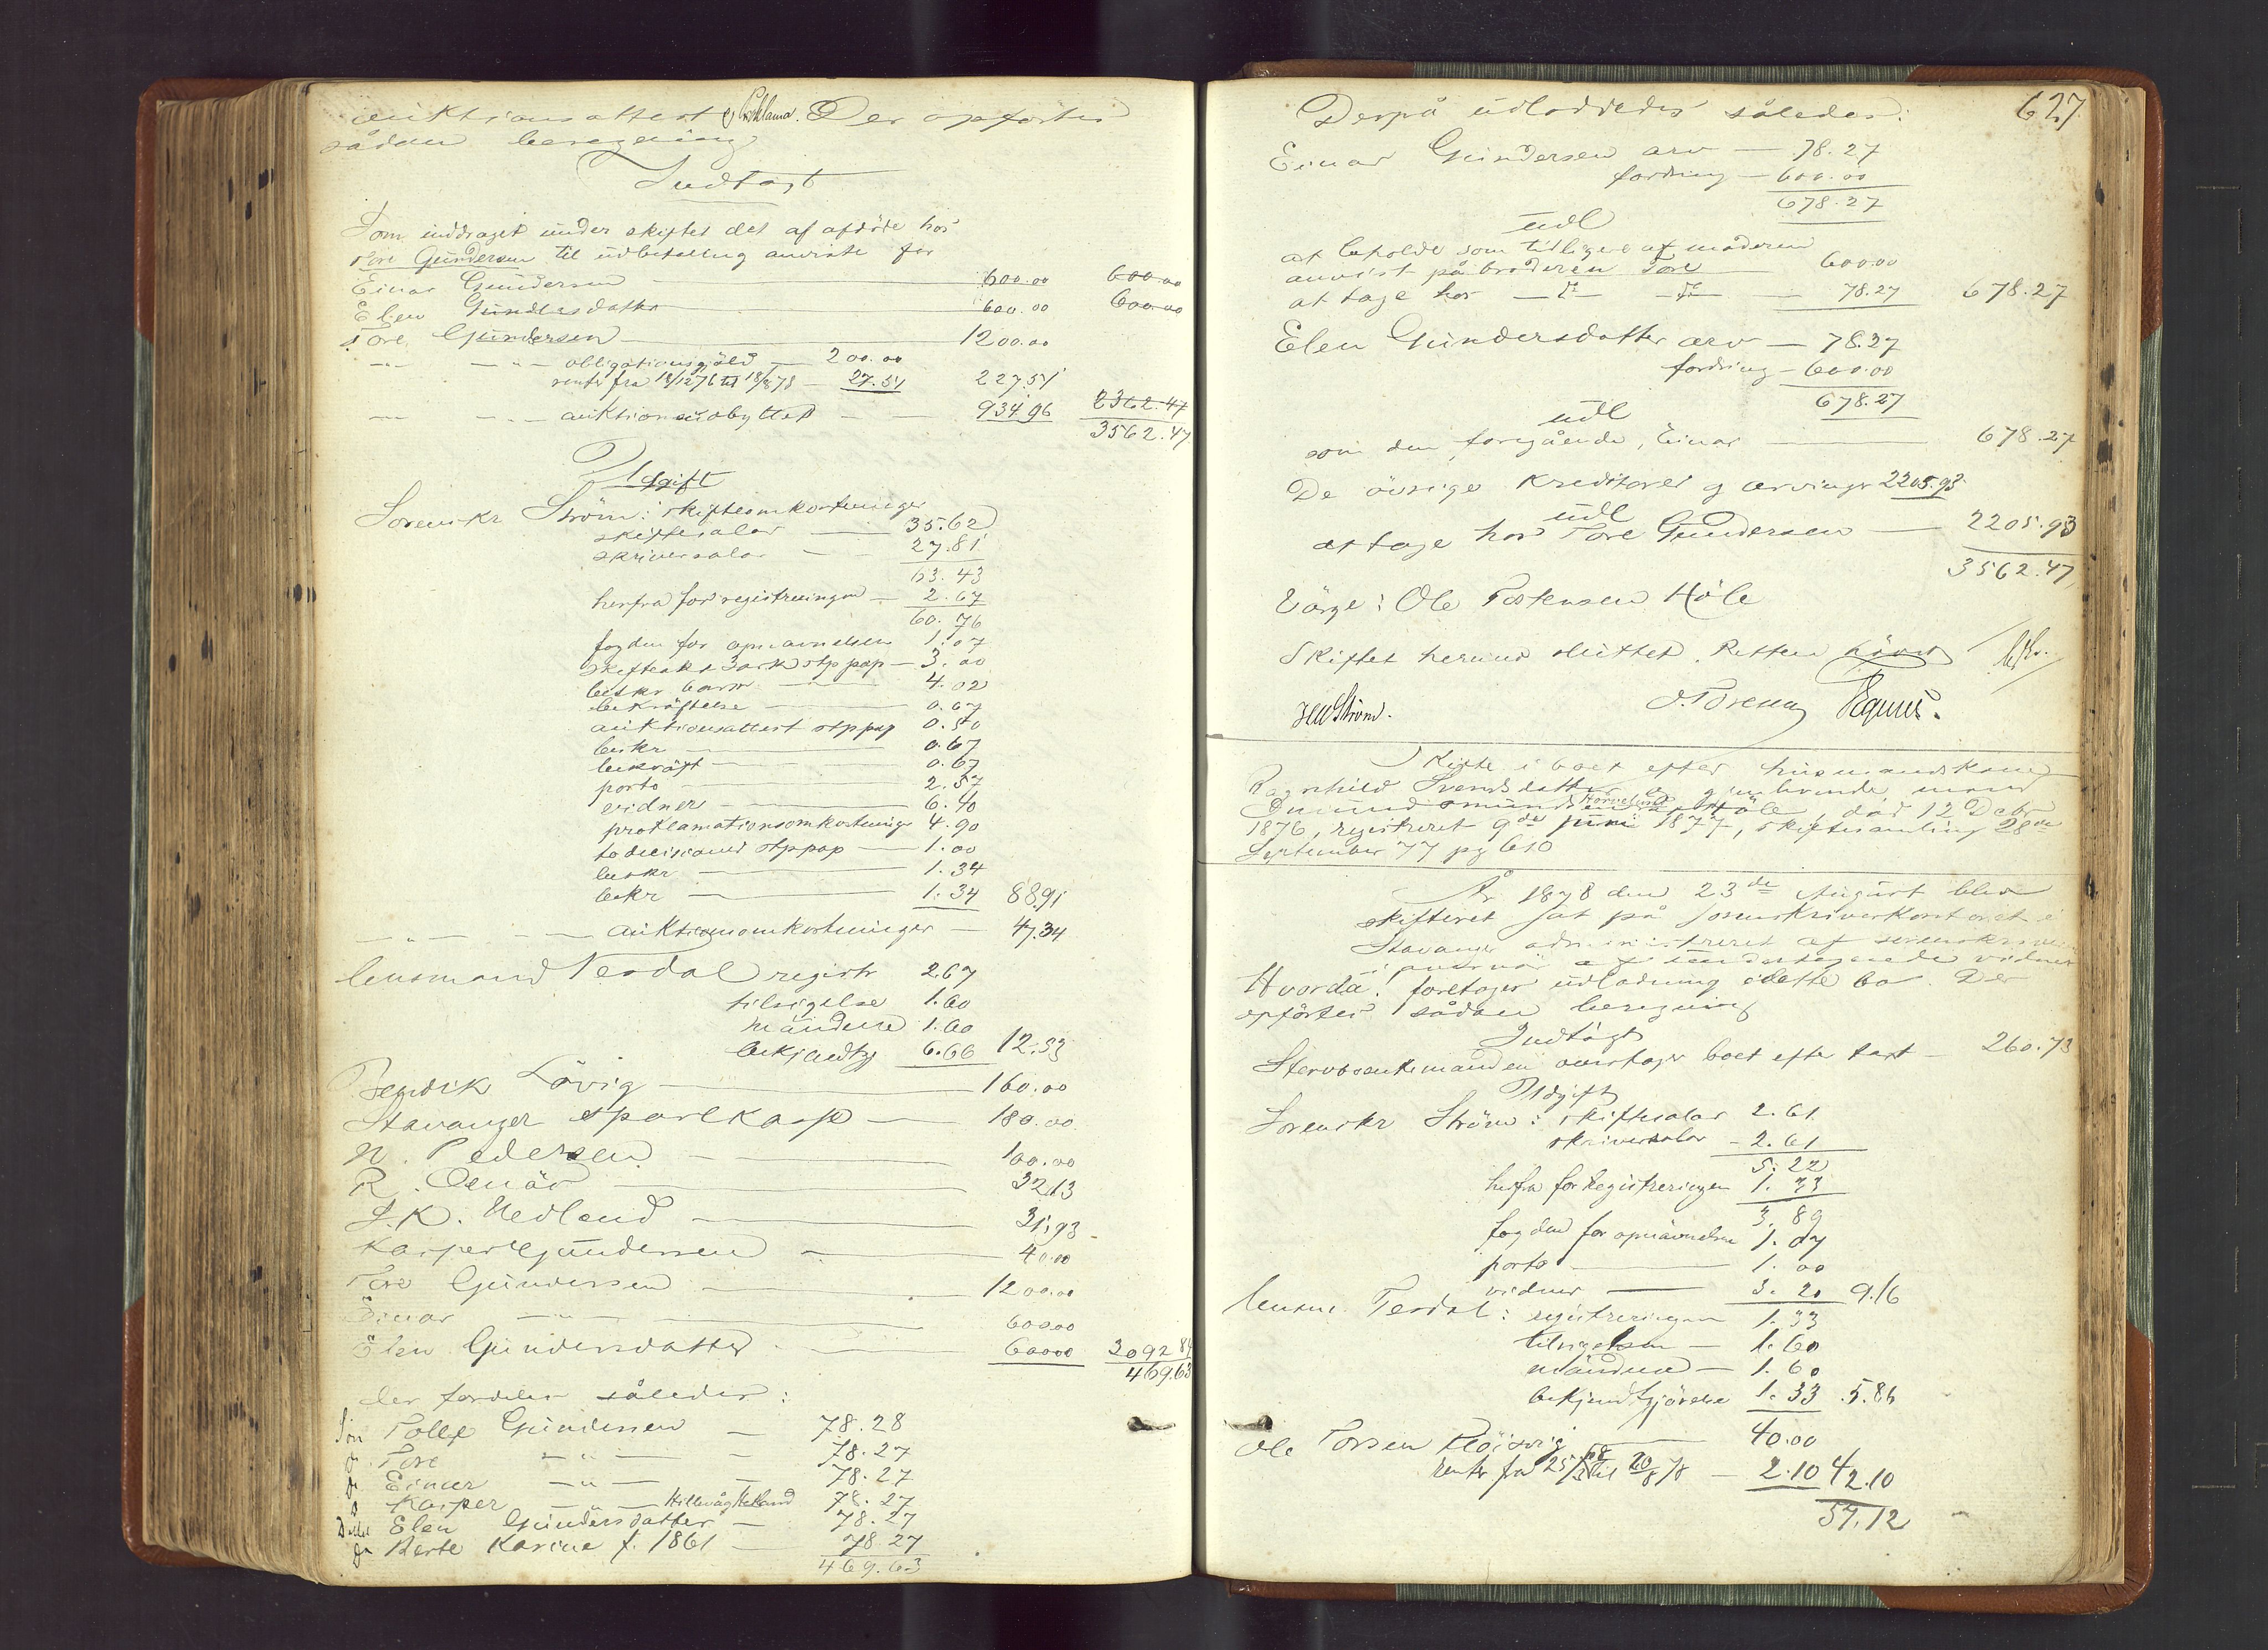 auktionsattest og Proklama. Der opførtes
sådan beregning
Indtægt
Som inddraget under skiftet det af afdöde hos
Tore Gundersen til udbetaling anviste for
Einar Gundersen — 600.00 600.00
Elen Gundersdatter — 600.00 600.00
Tore Gundersen — 1200.00
— " — obligationsgjæld — 200.00
renter fra 18/12 76 til 18/8 78 — 27.51 227.51
— " — auktionsudbyttet — 934.96 2362.47
3562.47
Udgift
Sorenskr Ström: skifteomkostninger
skiftesalar — 35.62
skriversalar — 27.81
63.43
herfra for registreringen — 2.67
60.76
fogden for opnævnelsen 1.07
skifteakt 3 ark stp pap — 3.00
beskr 6 ark — 4.02
bekräftelse — 0.67
auktionsattest stp pap 0.50
beskr — 0.67
bekräft — 0.67
porto — 2.57
vidner — 6.40
proklamationsomkostninger 4.90
to decisioner stp pap — 1.00
beskr — 1.34
bekr — 1.34 88.91
— " — auktionsomkostninger — 47.34
lensmand Tesdal registr 2.67
tilsigelse 1.60
mændene 1.60
bekjendtg 6.66 12.53
Bendik Lövig — 160.00
Stavanger sparekasse — 180.00
N. Pedersen — 100.00
R. — 32.13
L. K. Hedland — 31.93
Kasper Gundersen — 40.00
Tore Gundersen — 1200.00
Einar — " — 600.00
Elen Gundersdatter — 600.00 3092.84
469.63
der fordeles således:
Sön Tollef Gundersen — 78.28
do Tore — " — 78.27
do Einar — " — 78.27
do Kasper — " — Hillevåg Hetland 78.27
Datter Elen Gundersdatter — 78.27
do Berte Karine f. 1861 — 78.27
469.63
627
Derpå udloddedes således:
Einar Gundersen arv — 78.27
fordring — 600.00
678.27
udl
at beholde som tidligere af moderen
anvist på broderen Tore — 600.00
at tage hos — do — do — 78.27 678.27
Elen Gundersdatter arv — 78.27
fordring — 600.00
678.27
udl
som den foregående, Einar — 678.27
De övrige kreditorer og arvinger 2205.93
udl
at tage hos Tore Gundersen — 2205.93
3562.47
Värge: Ole Torkensen Höle
Skiftet hermed sluttet. Retten hävet
HW Ström.
Skifte i boet efter husmandskone
Ragnhild Svendsdatter og gjenlevende mand
Omund Omundsen Höle, död 12 Decbr
1876, registreret 9de juni 1877, skiftesamling 28de
September 77 pg 610
År 1878 den 23de August blev
skifteret sat på sorenskriverkontoret i
Stavanger administreret af sorenskriveren
i overvær af undertegnede vidner
Hvorda: foretages udlodning i dette bo. Der
opförtes sådan beregning
Indtægt
Stervboenkemanden overtager boet efter taxt — 260.73
Udgift
Sorenskr Ström: skiftesalar 2.61
skriversalar — 2.61
5.22
herfra for registreringen 1.33
3.89
fogden for opnævnelsen 1.07
porto — 1.00
vidner — 3.20 9.16
lensm. Tesdal: registreringen 1.33
tilsigelsen — 1.60
mændene — 1.60
bekjendtgjörelse 1.33 5.86
Ole Torsen — 40.00
renter fra 25/ til 20/8 78 — 2.10 42.10
57.12